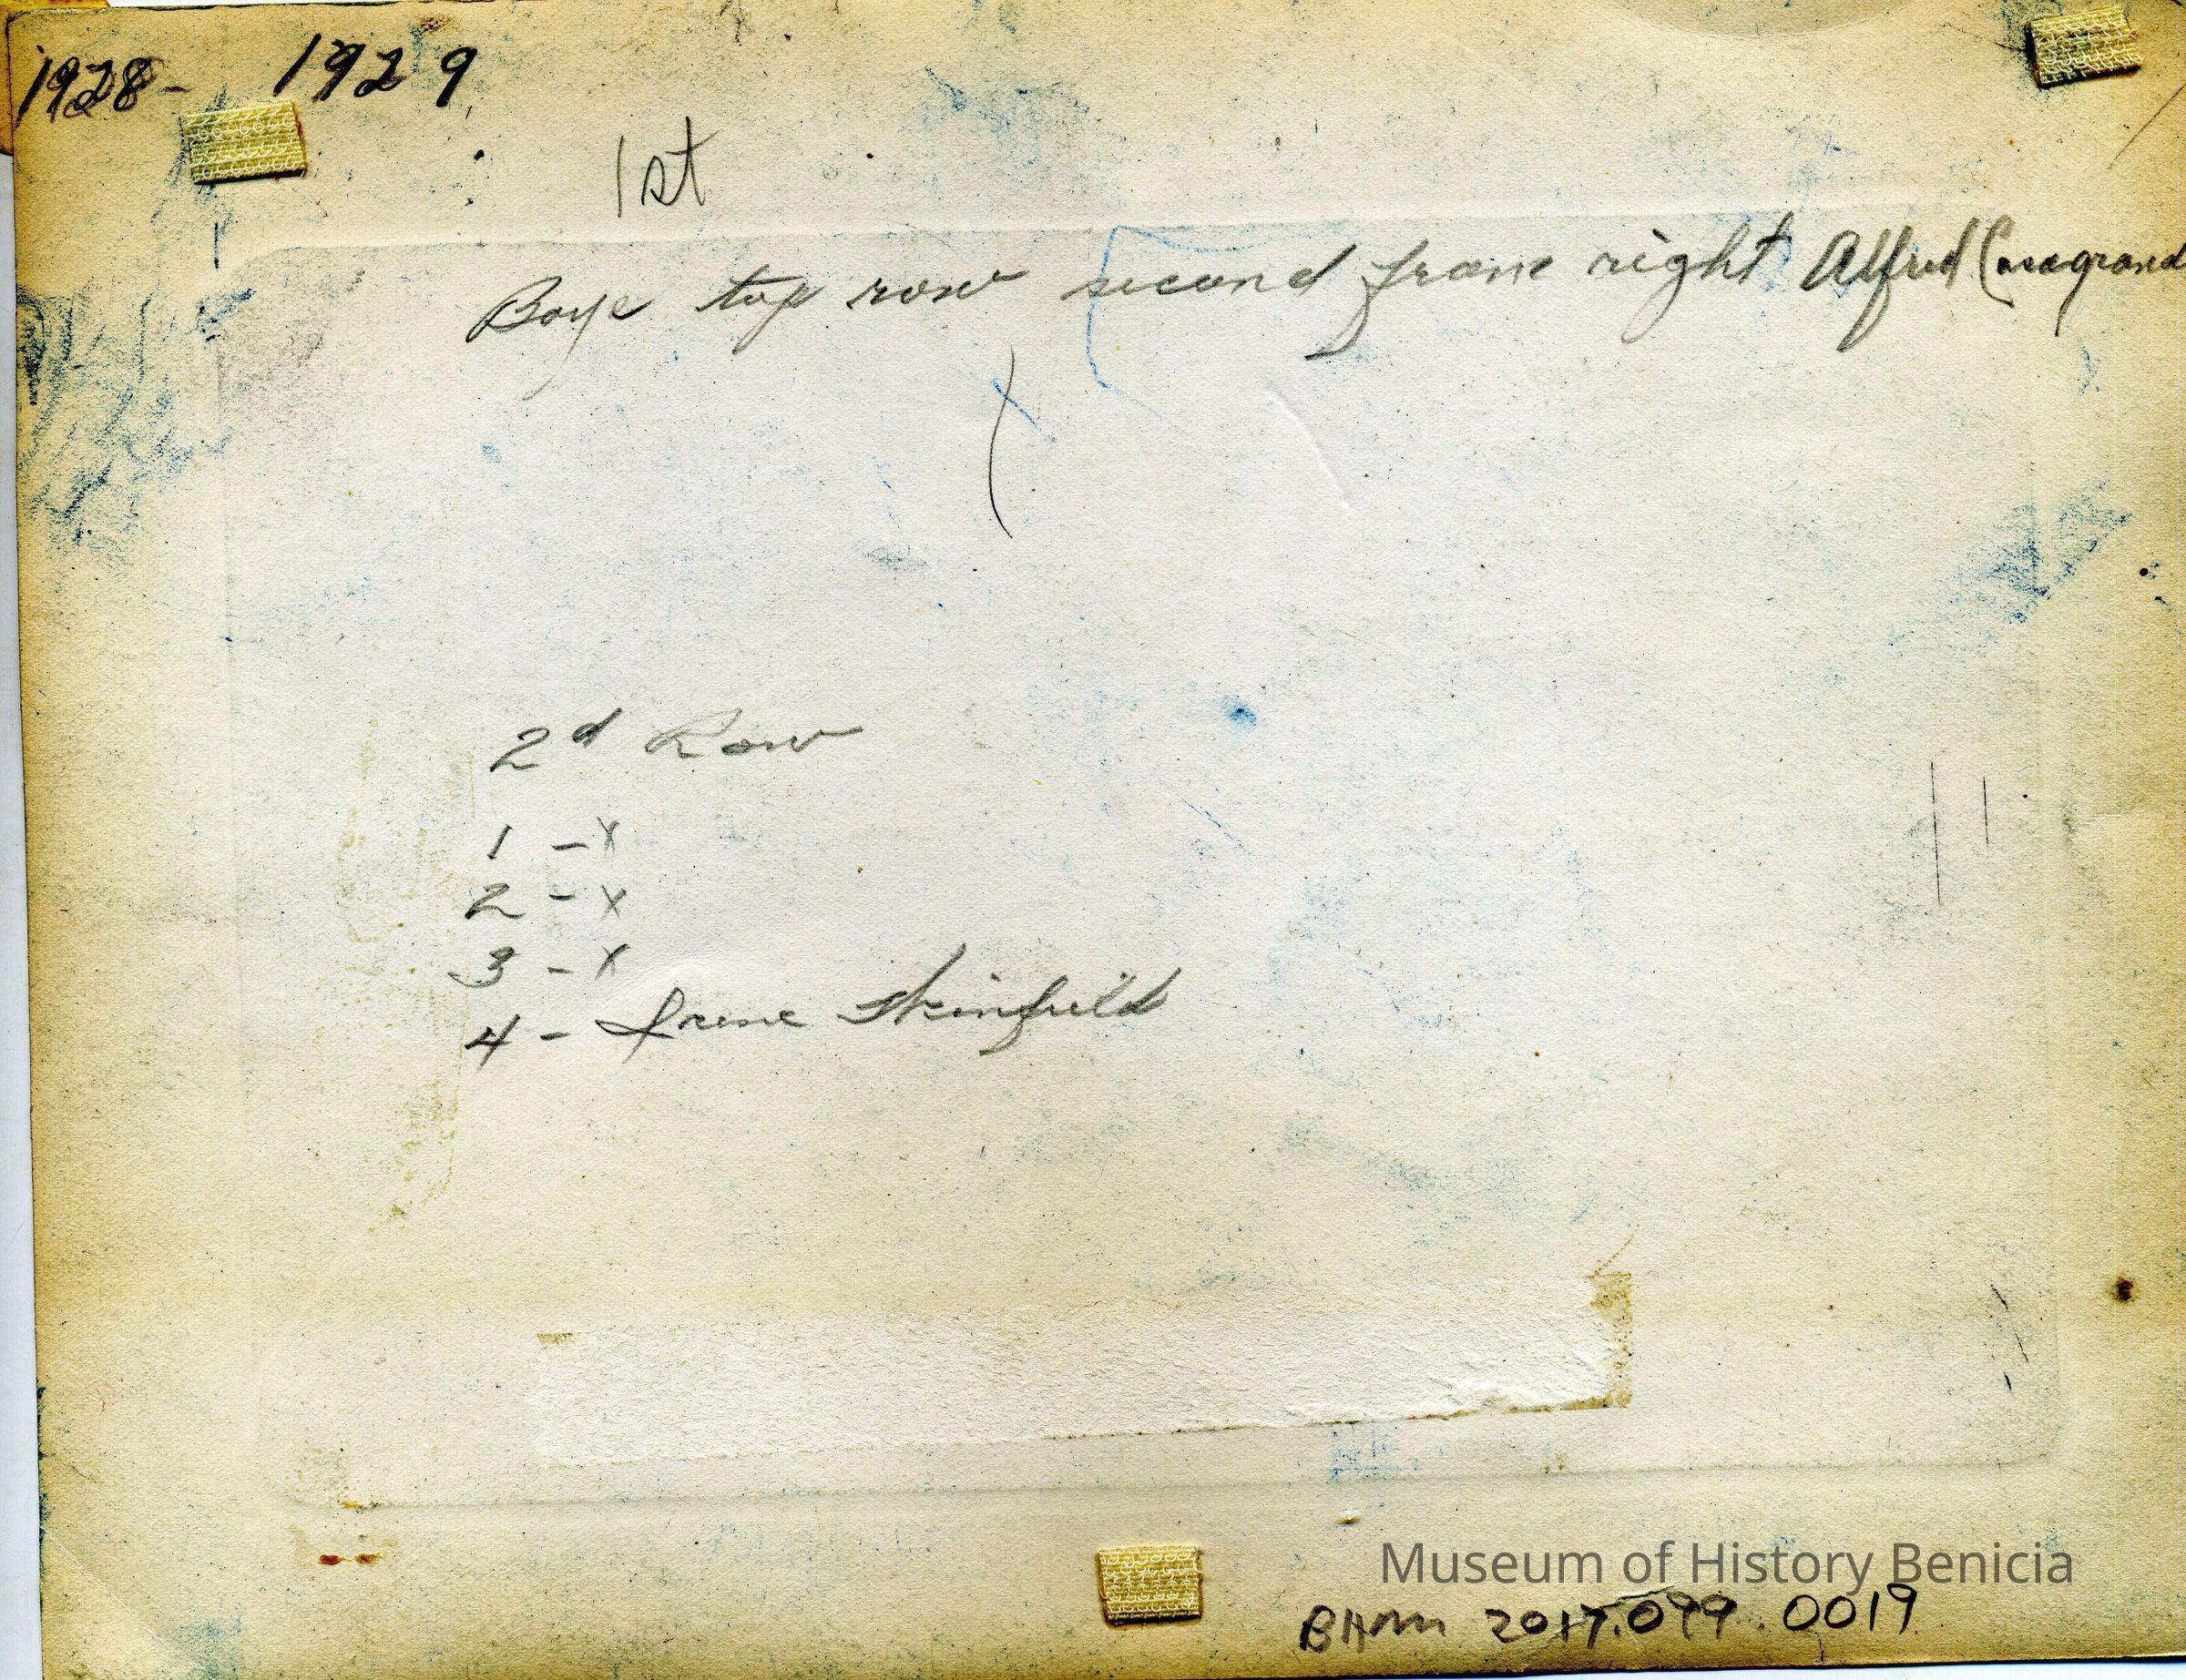 1928 - 1929
1st
Boys top row second from right Alfred Casagrand
2d Row
1 - x
2 - x
3 - x
4 - Irene Skinfield
Museum of History Benicia
BHM 2017.099.0019